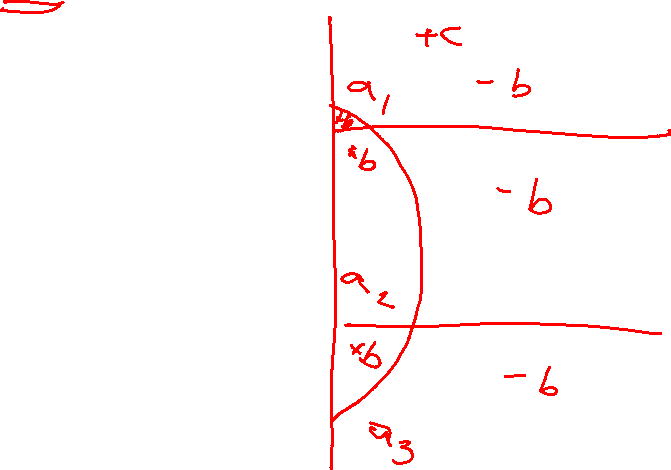 +c
a1
-b
+b
-b
a2
+b
-b
a3